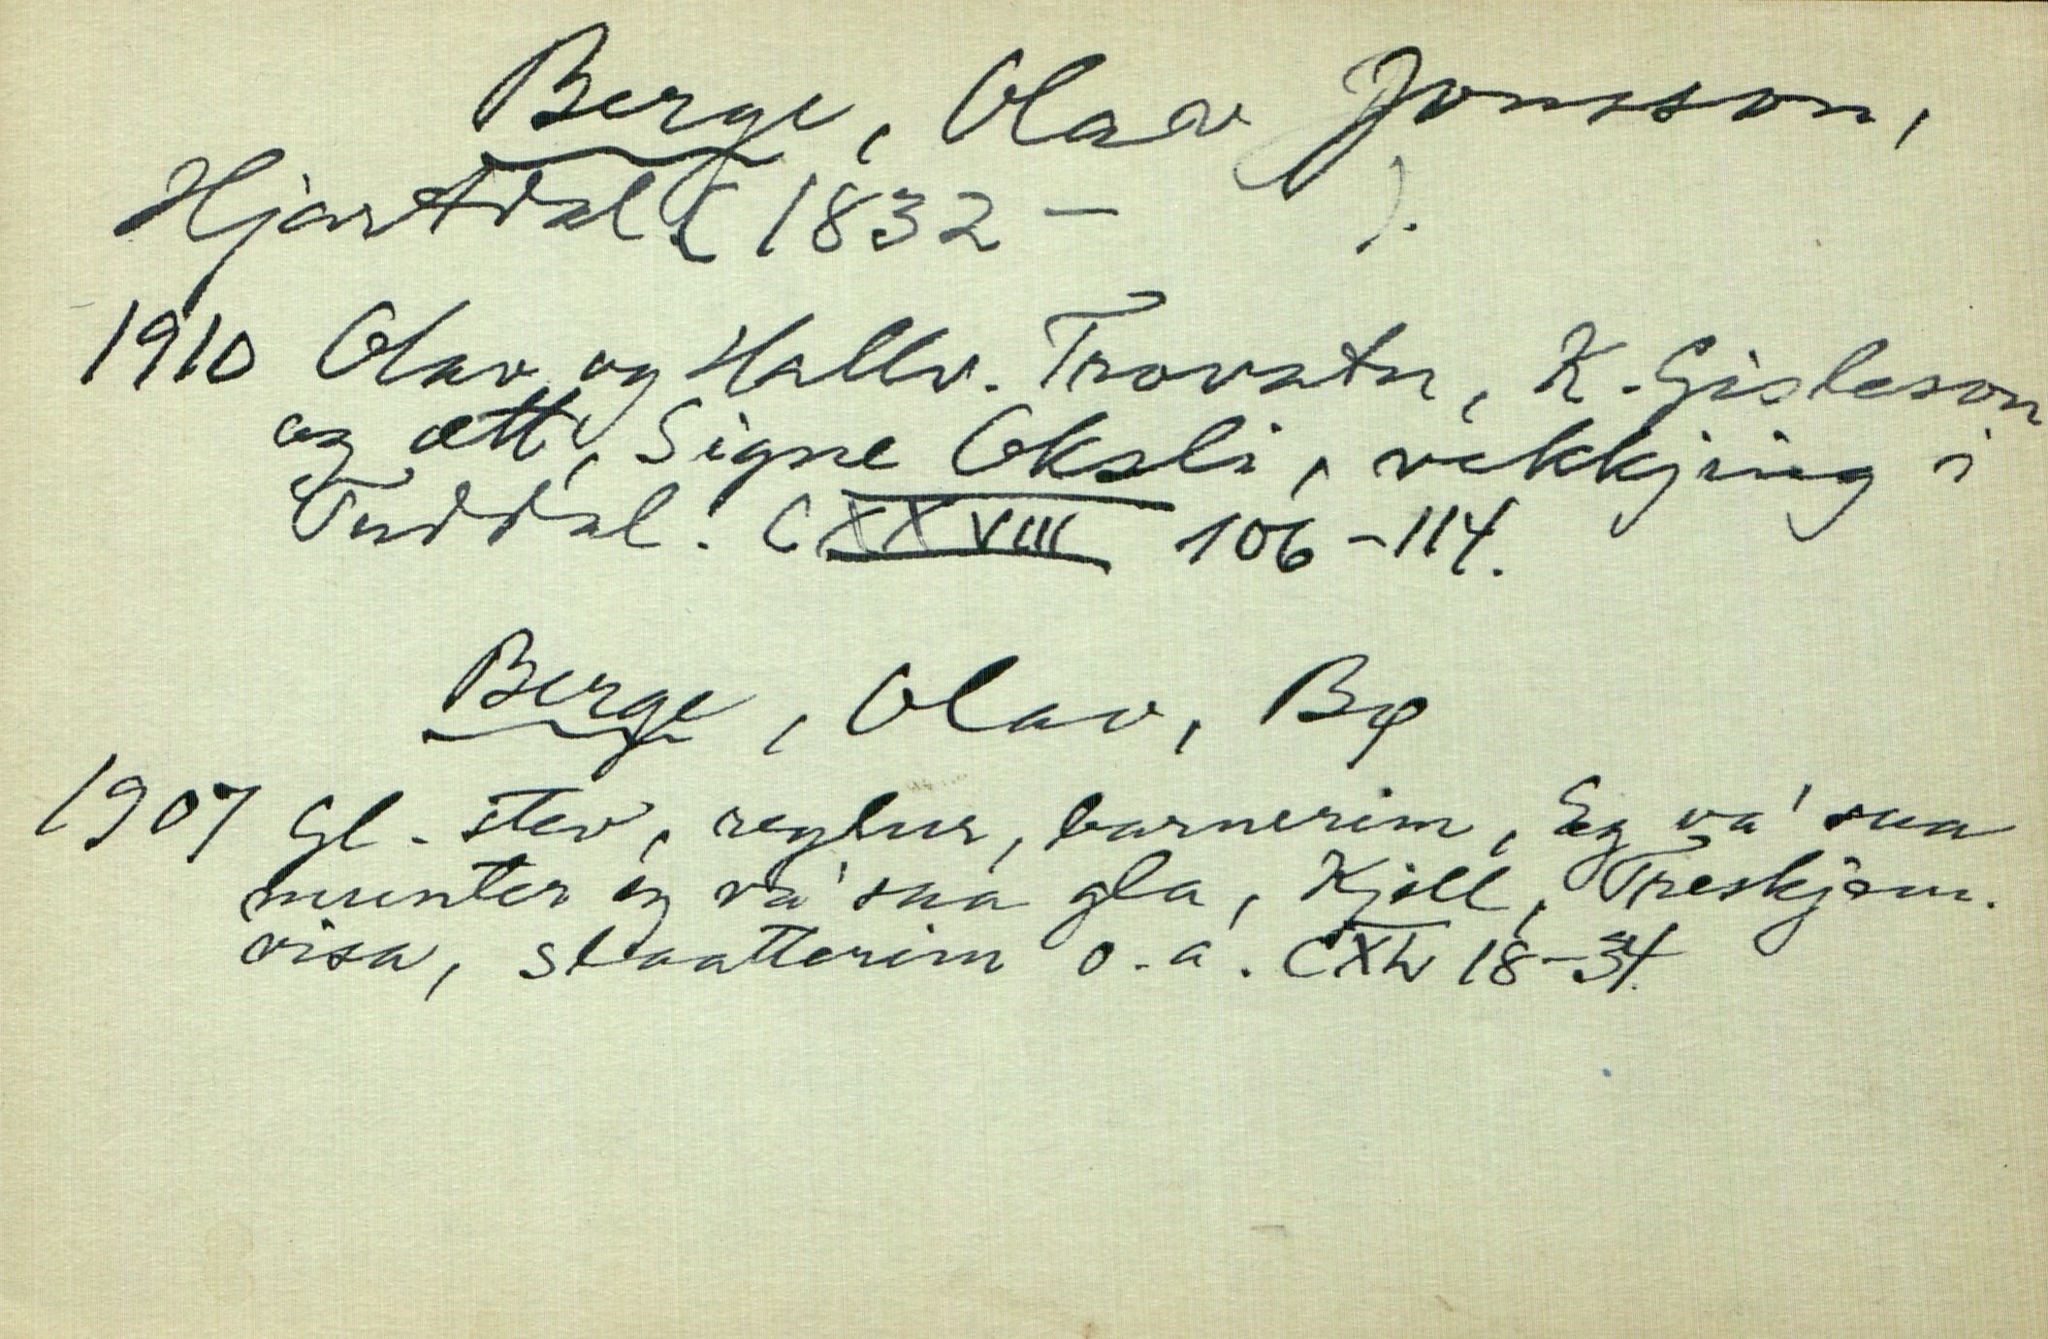 Berge, Olav Jonsson,
Hjartdal (1832 – ).
1910 Olav og Hallv. Trovatn, K. Gisleson
og ætt, Signe Oksli, vekkjing i
Tuddal. CXXVIII 106–114.
Berge, Olav, Bø
1907 Gl. stev, reglur, barnerim, Eg va' saa
munter eg va' saa gla, Kjell, Treskjem.
visa, slaatterim o.a. 18–34.